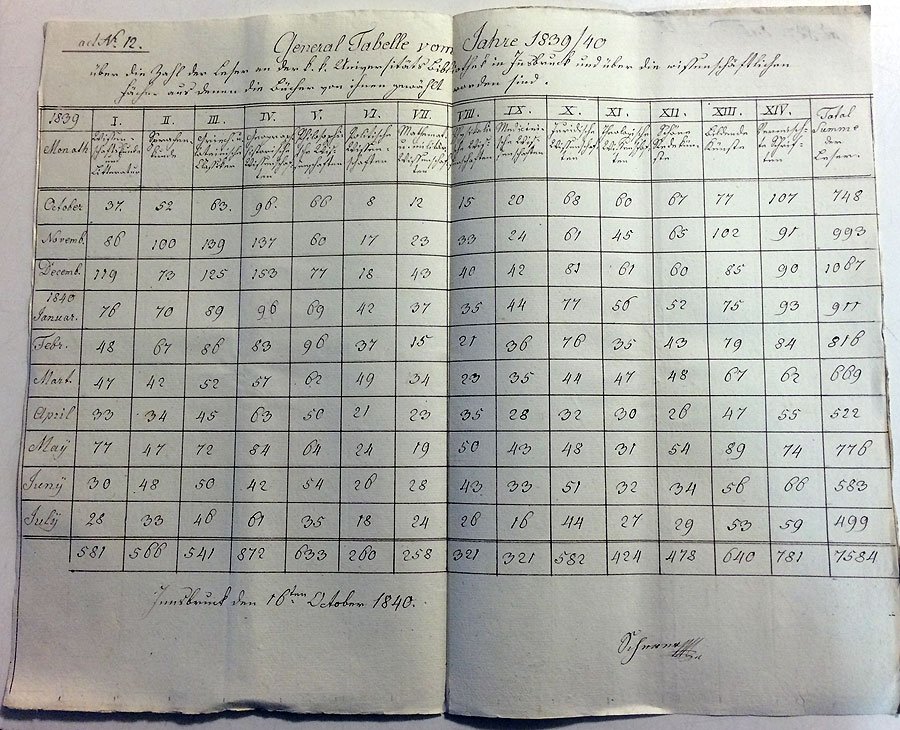 ad No. 12.
General Tabelle vom Jahre 1839/40
über die Zahl der Leser an der k. k. Universitäts Bibliothek in Insbruck und über die wissenschäftlichen
Fächer aus denen die Bücher von ihnen gewählt worden sind.
1839 I. II. III. IV. V. VI. VII. VIII. IX. X. XI. XII. XIII. XIV. Total Summe der Leser.
Monath
October 37. 52 63. 96. 66 8 12 15 20 68 60 67 77 107 748
Novemb. 86 100 139 137 60 17 23 33 24 61 45 65 102 91 993
Decemb. 119 73 125 153 77 18 43 40 42 81 61 60 85 90 1067
1840
Januar. 76 70 89 96 69 42 37 35 44 77 56 52 75 93 911
Febr. 48 67 86 83 96 37 15 21 36 76 35 43 79 84 816
Mart. 47 42 52 57 62 49 34 23 35 44 47 48 67 62 669
April 33 34 45 63 50 21 23 35 28 32 30 26 47 55 522
Maÿ 77 47 72 84 64 24 19 50 43 48 31 54 89 74 776
Junÿ 30 48 50 42 54 26 28 43 33 51 32 34 56 66 583
Julÿ 28 33 46 61 35 18 24 26 16 44 27 29 53 59 499
581 566 541 872 633 260 258 321 321 582 424 478 640 781 7584
Innsbruck den 16ten October 1840.